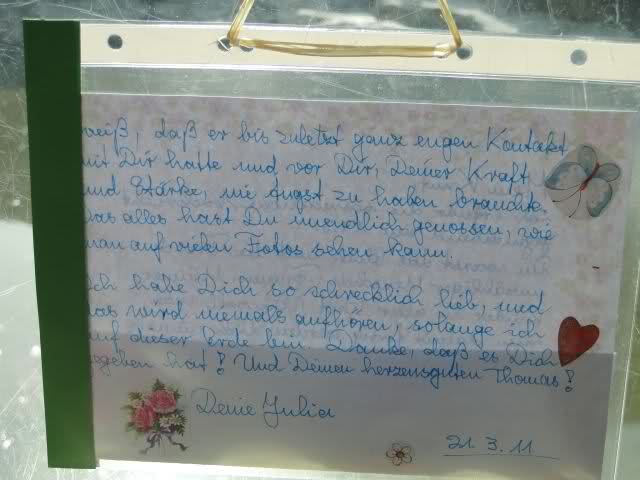 weiß, daß er bis zuletzt ganz engen Kontakt
mit Dir hatte und vor Dir, Deiner Kraft
und Stärke, nie Angst zu haben brauchte.
Das alles hast Du unendlich genossen, wie
man auf vielen Fotos sehen kann.
Ich habe Dich so schrecklich lieb, und
das wird niemals aufhören, solange ich
auf dieser Erde bin. Danke, daß es Dich
gegeben hat! Und Deinen herzensguten Thomas!
Deine Julia
21.3.11